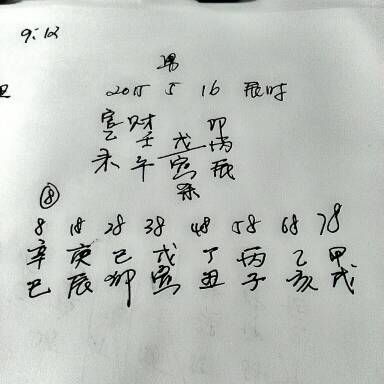 9:12
男
2015 5 16 辰时
官 财 卩
乙 壬 戊 丙
未 午 寅 辰
杀
⑧
8 18 28 38 48 58 68 78
辛 庚 己 戊 丁 丙 乙 甲
巳 辰 卯 寅 丑 子 亥 戌